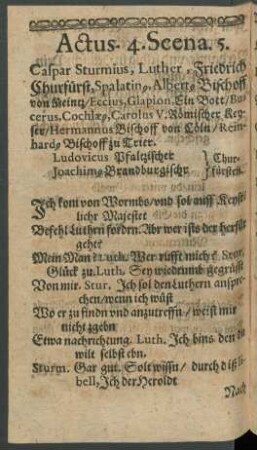 Actus. 4. Scena. 5.
Caspar Sturmius, Luther, Friedrich
Churfürst, Spalatinꝰ, Albertꝰ Bischoff
von Meintz / Eccius, Glapion. Ein Bott / Bu-
cerus. Cochlæꝰ, Carolus V. Römischer Key-
ser / Hermannus Bischoff von Cöln / Rein-
hardꝰ Bischoff zu Trier.
Ludovicus Pfaltzischer
Joachimꝰ Brandburgischr
} Chur-
fürsten.
Ich kom von Wormbs / vnd sol auff Keysr-
lichr Majestet
Befehl Luthern fordrn. Abr wer ists der herfür
gehet
Mein Man? Luth. Wer rufft mich? Stur.
Glück zu. Luth. Sey wiedrumb gegrüsst
Von mir. Stur. Ich sol den Luthern anspre-
chen / wenn ich wüst
Wo er zu findn vnd anzutreffn / weist mir
nicht zgebn
Etwa nachrichtung. Luth. Ich bins den du
wilt selbst ebn.
Sturm. Gar gut. Solt wissn / durch diß li-
bell, Ich der Heroldt
Nach